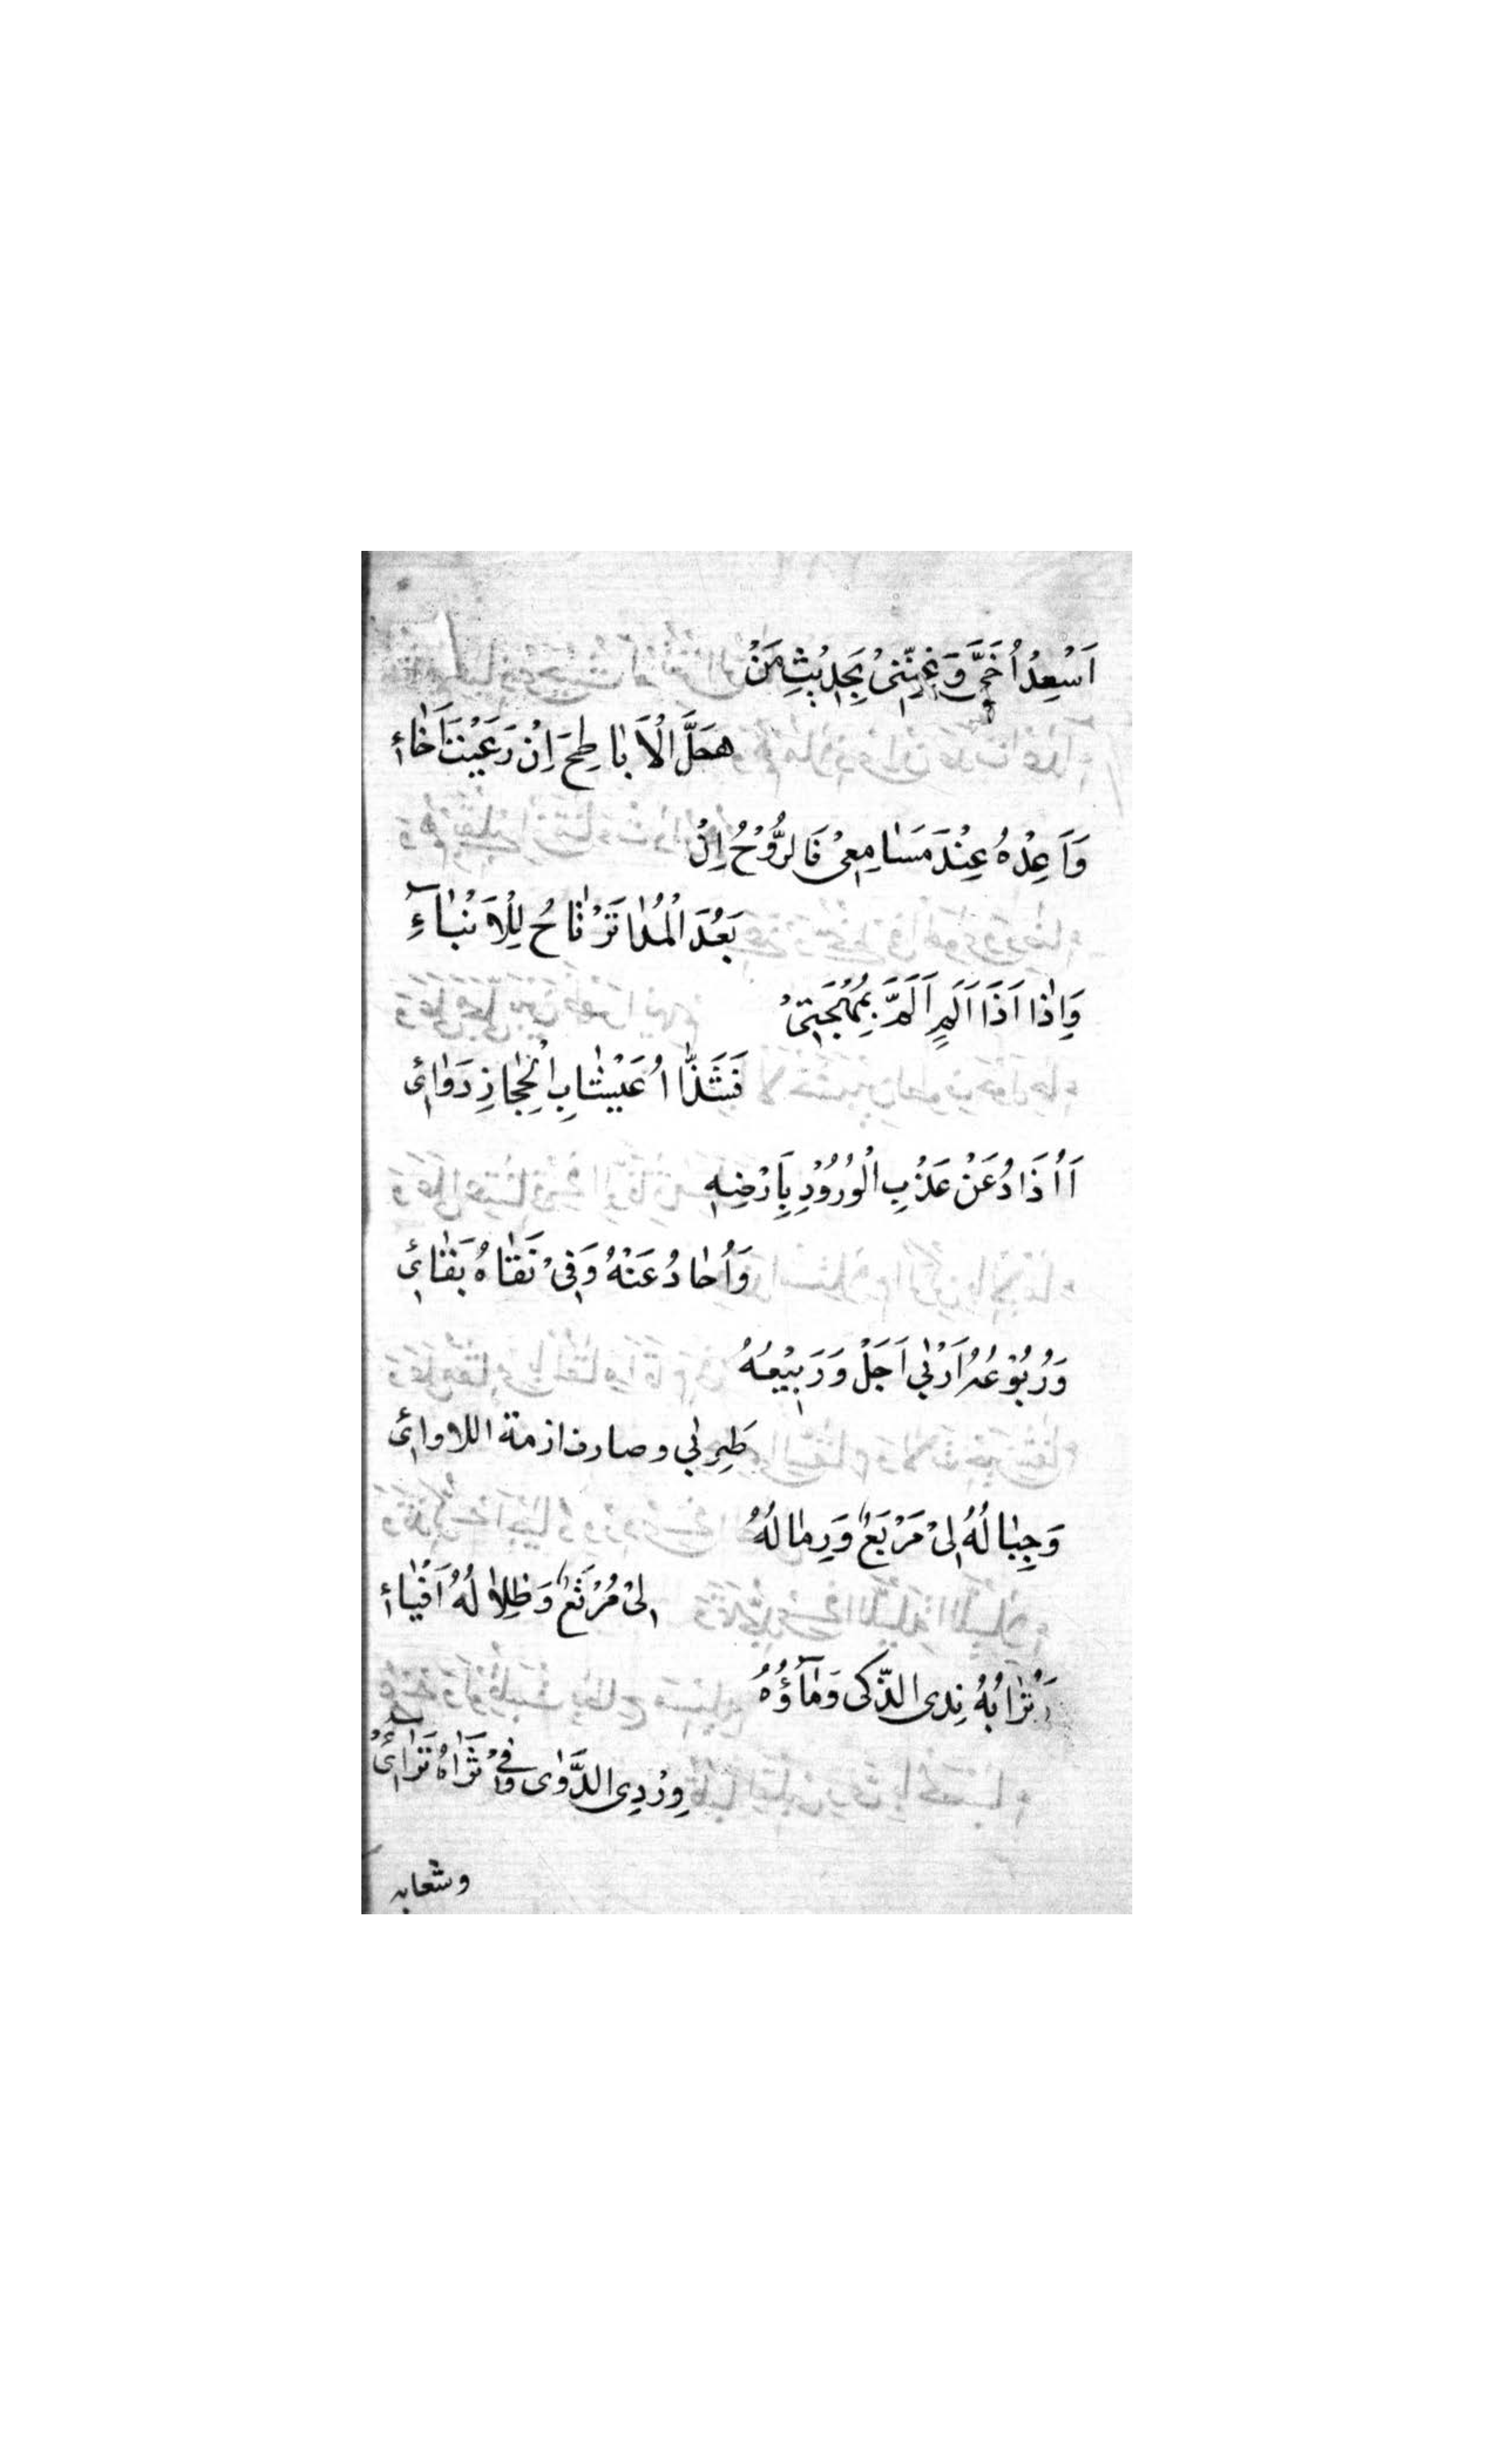 اَسْعِدُ اُخَيَّ وَغَنِّنِيْ بِحَدِيْثِ مَنْ
حَلَّ الْاَبَاطِحَ اِنْ رَعَيْتَ اَخَائِ
وَاَعِدْهُ عِنْدَ مَسَامِعِيْ فَالرُّوْحُ اِنْ
بَعُدَ الْمُدَا تَرْتَاحُ لِلْاَنْبَآءِ
وَاِذَا اَذَا اَلَمٍ اَلَمَّ بِمُهْجَتِيْ
فَشَذَا اُعَيْشَابِ الْحِجَازِ دَوَائِي
اَاُذَادُ عَنْ عَذْبِ الْوُرُوْدِ بِاَرْضِهِ
وَاُحَادُ عَنْهُ وَفِيْ نَقَاهُ بَقَائِي
وَرُبُوْعُهُ اَرَبِي اَجَلْ وَرَبِيْعُهُ
طَرِبي وصارف ازمة اللاوائى
وَجِبَالُهُ لِيْ مَرْبَعٌ وَرِمَالُهُ
لِيْ مُرْتَعٌ وَظِلَالُهُ اَفْيَائ
وَتُرَابُهُ نِدى الذَّكى وَمَآؤُهُ
وِرْدِى الدَّوٰى وَفِيْ ثَرَاهُ تَرَائىُ
وشعابه